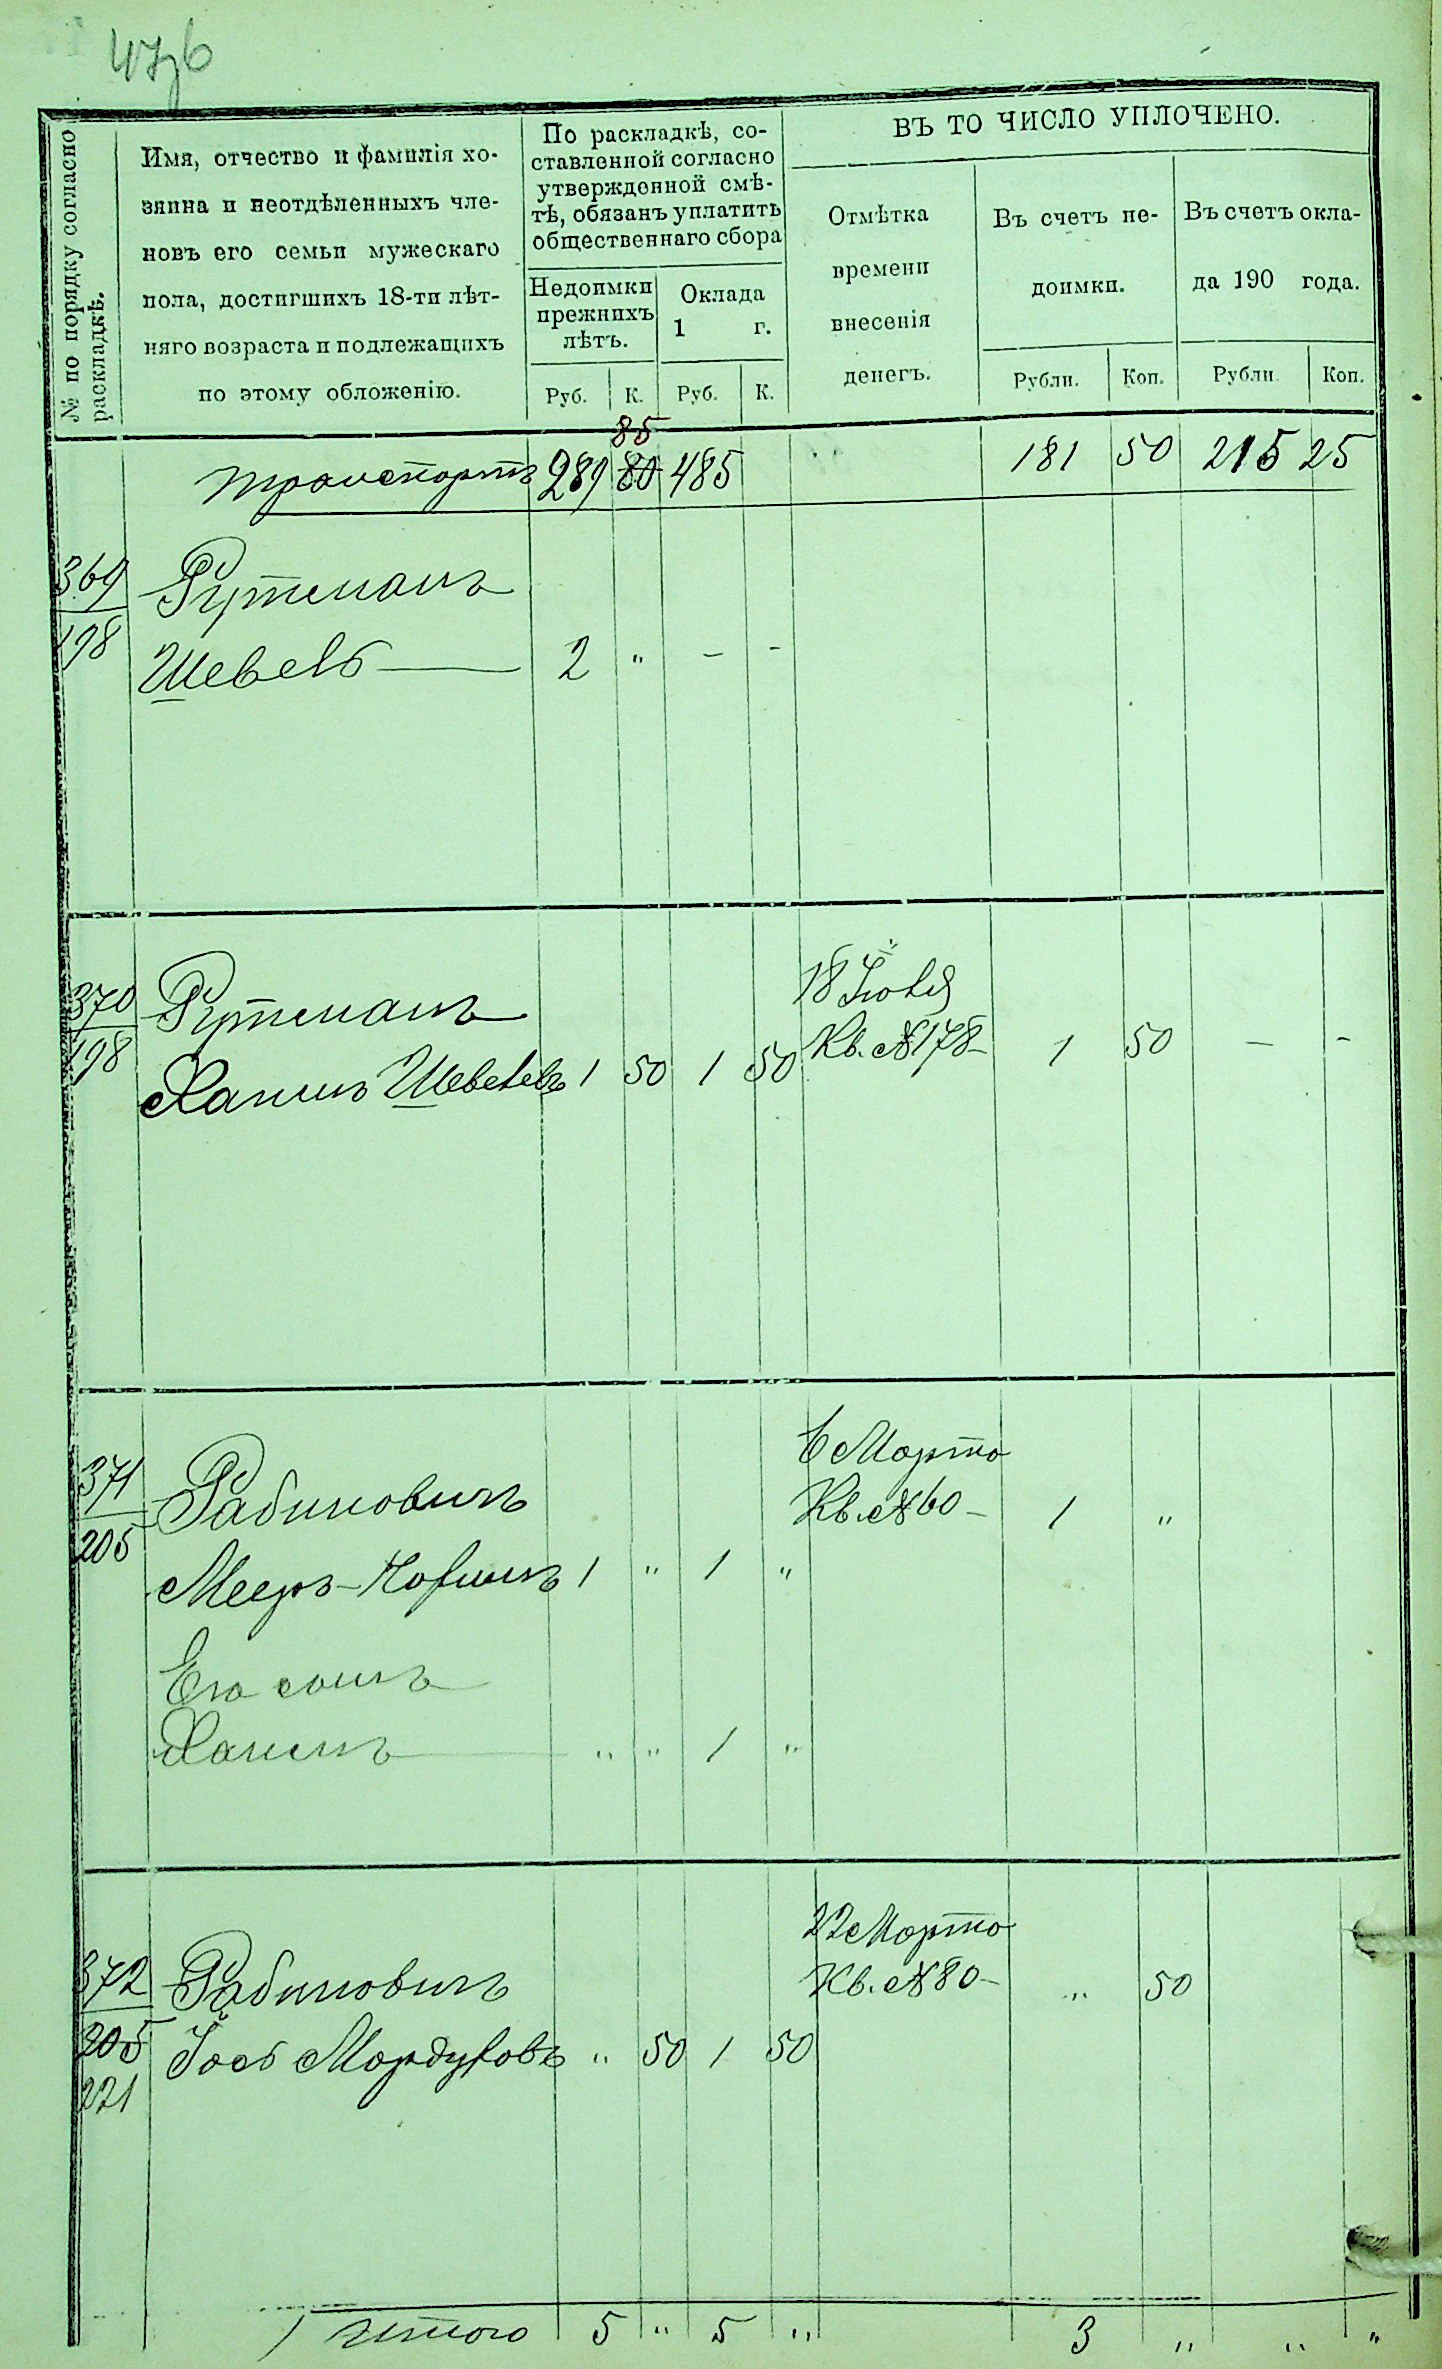 47об
№ по порядку согласно
раскладкѣ.
Имя, отчество и фамилія хо-
зяина и неотдѣленныхъ чле-
новъ его семьи мужескаго
пола, достигшихъ 18-ти лѣт-
няго возраста и подлежащихъ
по этому обложенію.
По раскладкѣ, со-
ставленной согласно
утвержденной смѣ-
тѣ, обязанъ уплатить
общественнаго сбора
Недоимки
прежнихъ
лѣтъ.
Оклада
1 г.
Руб. К. Руб. К.
ВЪ ТО ЧИСЛО УПЛОЧЕНО.
Отмѣтка
времени
внесенія
денегъ.
Въ счетъ не-
доимки.
Рубли. Коп.
Въ счетъ окла-
да 190 года.
Рубли Коп.
85
Транспортъ 289 80 485 181 50 215 25
369
198
Рутманъ
Шевель 2 " - -
370
198
Рутманъ
Хаимъ Шевелевъ 1 50 1 50
18 Іюля
Кв. №178- 1 50 - -
371
205
Рабиновичъ
Мееръ-Нохимъ 1 " 1 "
6 Марта
Кв. №60- 1 "
Его сынъ
Хаимъ " " 1 "
372
205
221
Рабиновичъ
Іосъ Мордуховъ " 50 1 50
22 Марта
Кв. №80- " 50
Итого 5 " 5 " 3 " " "